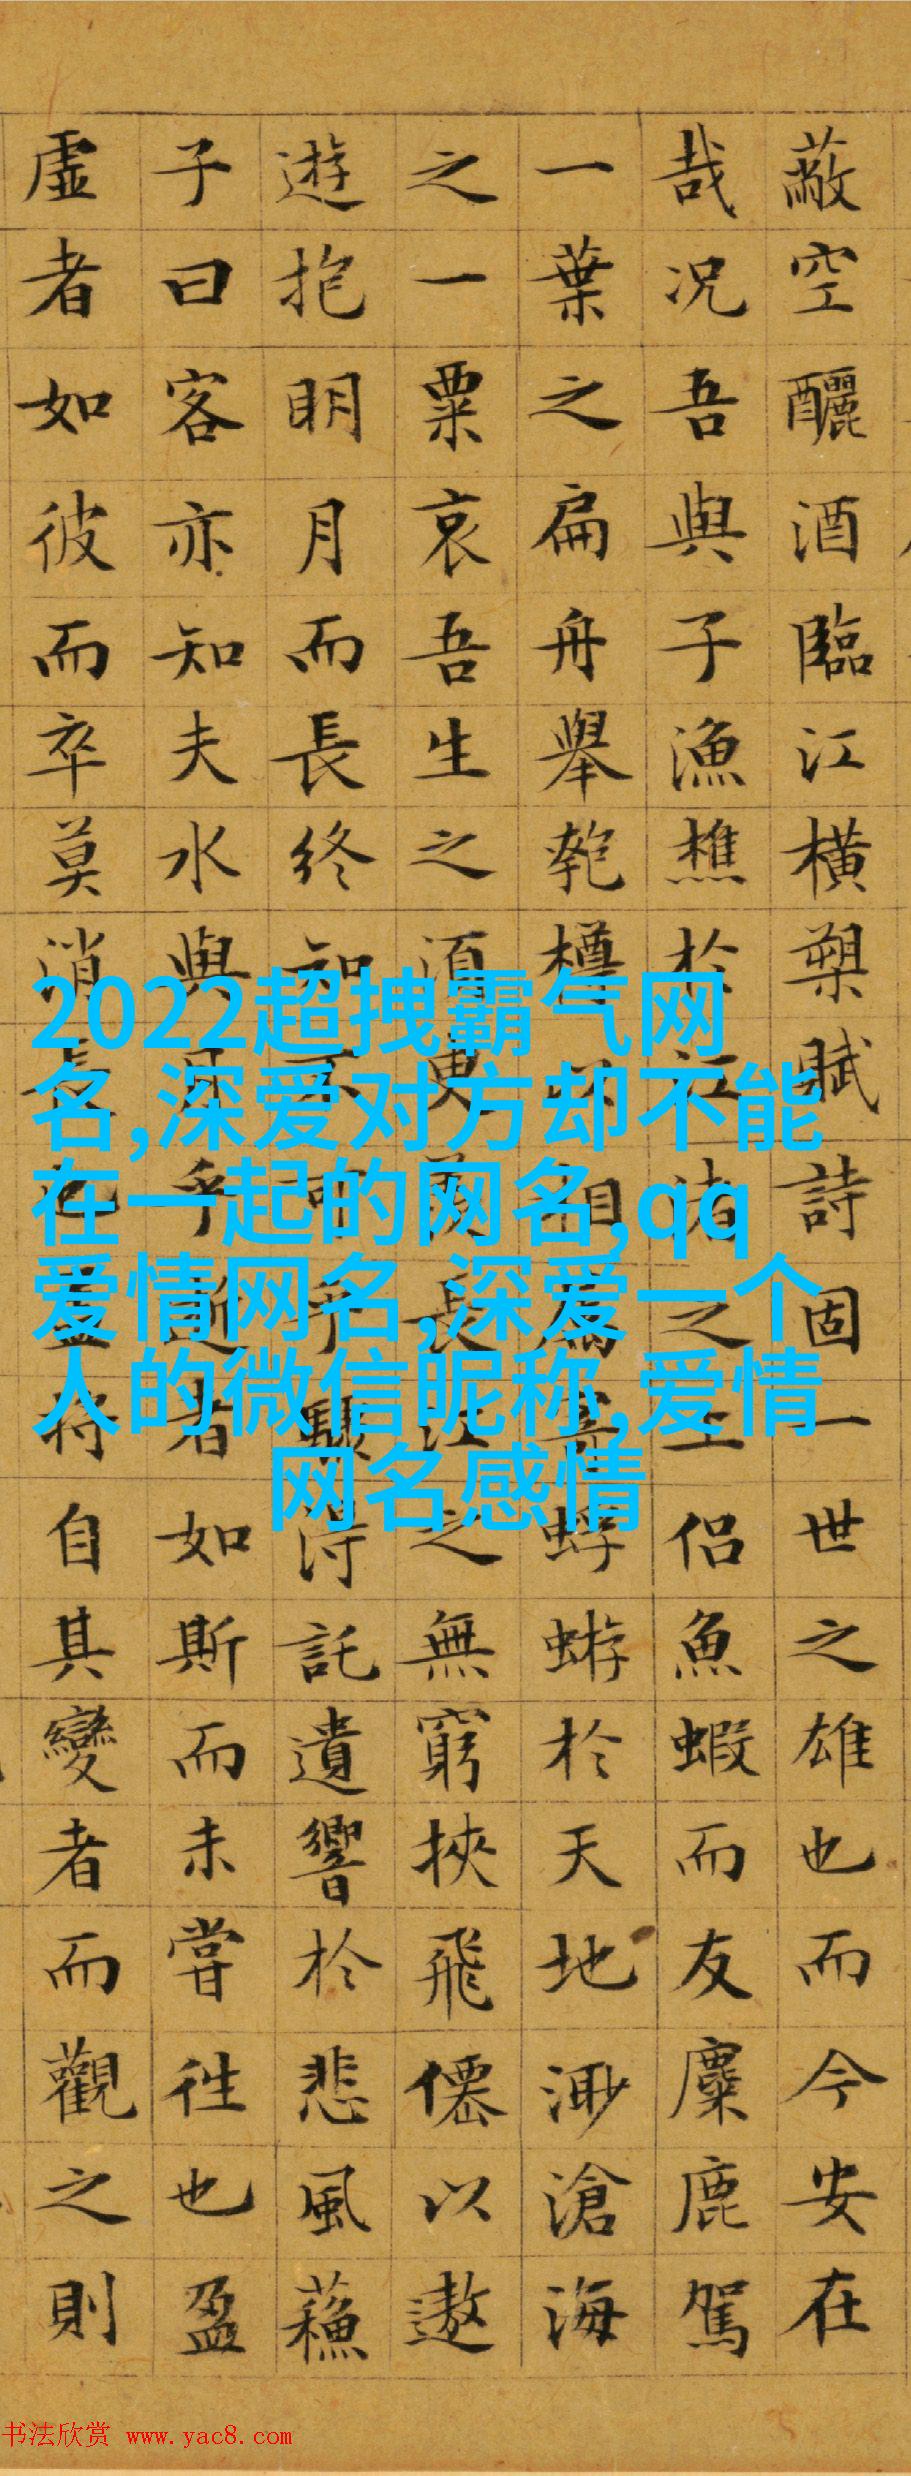 蔽空釃酒臨江橫槊賦詩固一世之雄也而今安在
哉况吾與子漁樵於江渚之上侶魚蝦而友麋鹿駕
一葉之扁舟舉匏樽以相屬寄蜉蝣於天地渺滄海
之一粟哀吾生之須臾羨長江之無窮挾飛僊以遨
遊抱明月而長終知不可乎驟得託遺響於悲風蘓
子曰客亦知夫水與月乎逝者如斯而未嘗往也盈
虛者如彼而卒莫消長也蓋将自其變者而觀之則
2022超拽霸气网
名,深爱对方却不能
在一起的网名,qq
爱情网名,深爱一个
人的微信昵称,爱情
网名感情
书法欣赏 www.yac8.com